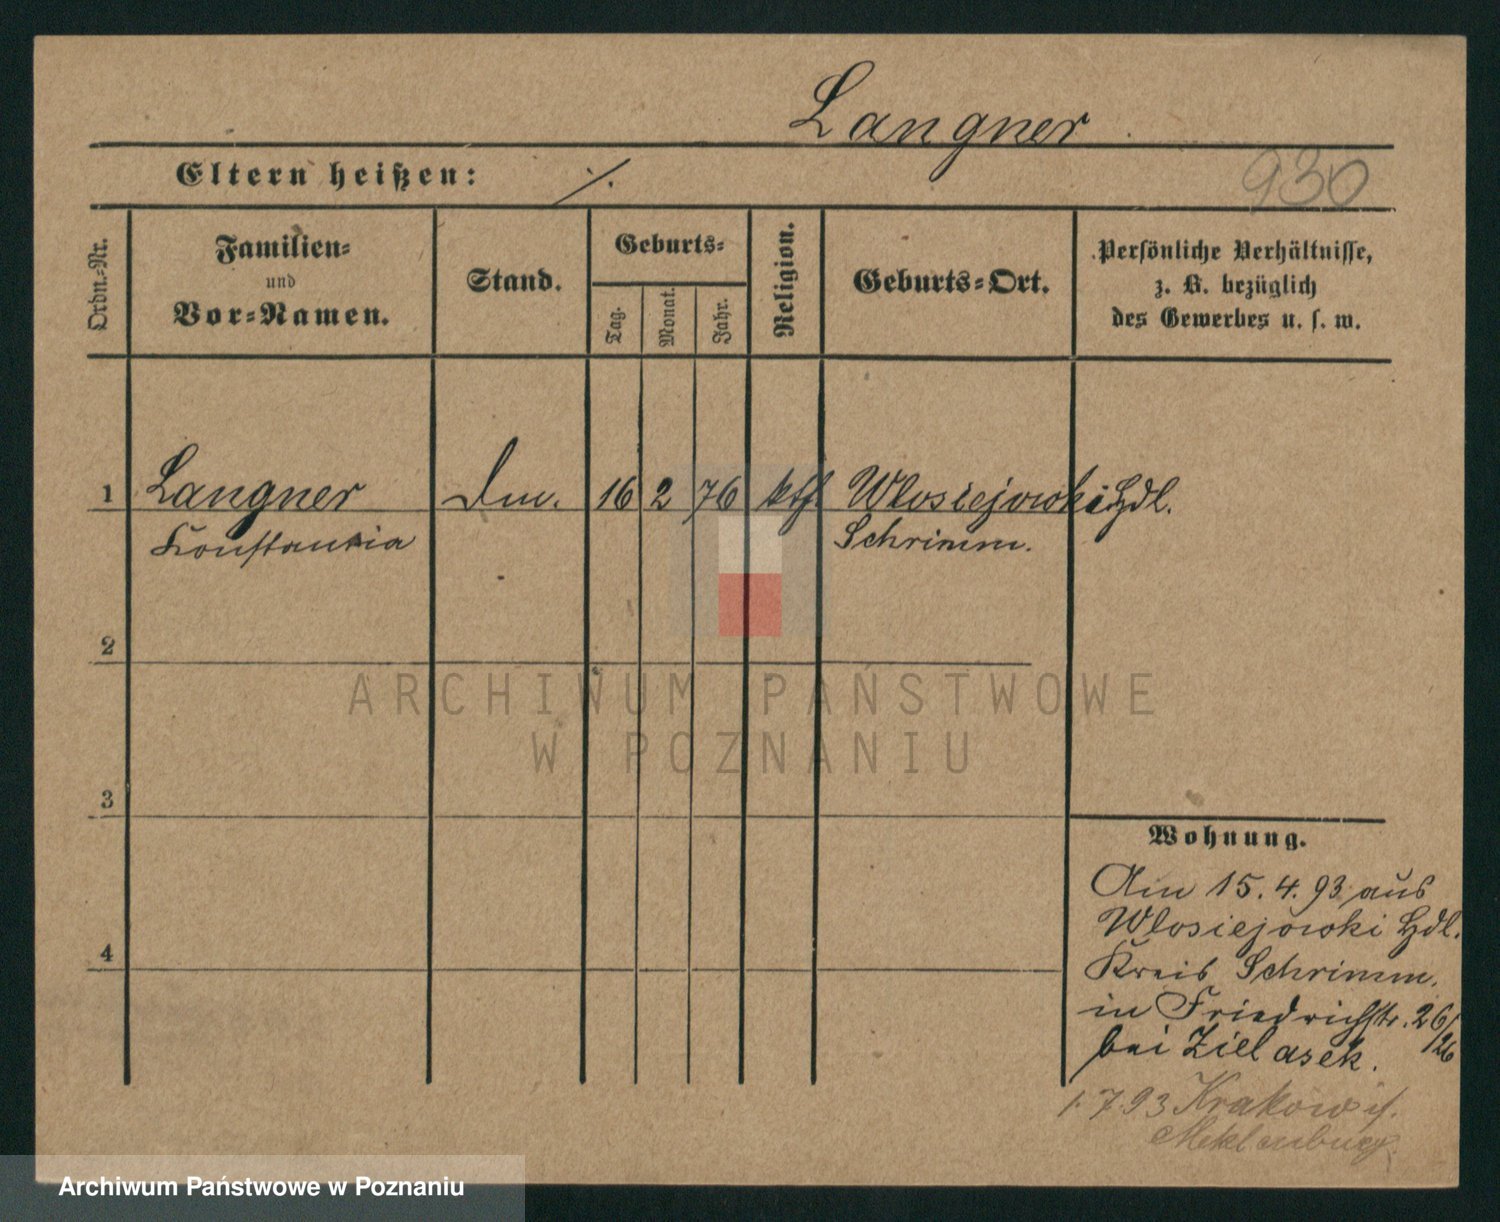 Langner
Eltern heißen: ·/.
930
Ordn.-Nr.
Familien-
und
Vor-Namen.
Stand.
Geburts-
Tag.
Monat.
Jahr.
Religion.
Geburts-Ort.
Persönliche Verhältnisse,
z. B. bezüglich
des Gewerbes u. s. w.
1 Langner 16 2 76 kth. Wlosiejewki Hdl.
Konstantia Schrimm.
2
ARCHIWUM PAŃSTWOWE
W POZNANIU
3
Wohnung.
Am 15. 4. 93 aus
Wlosiejewki Hdl.
Kreis Schrimm.
in Friedrichstr. 26/
/26
bei Zielasek.
4
1. 7. 93 Krakow i/.
Meklenburg.
Archiwum Państwowe w Poznaniu